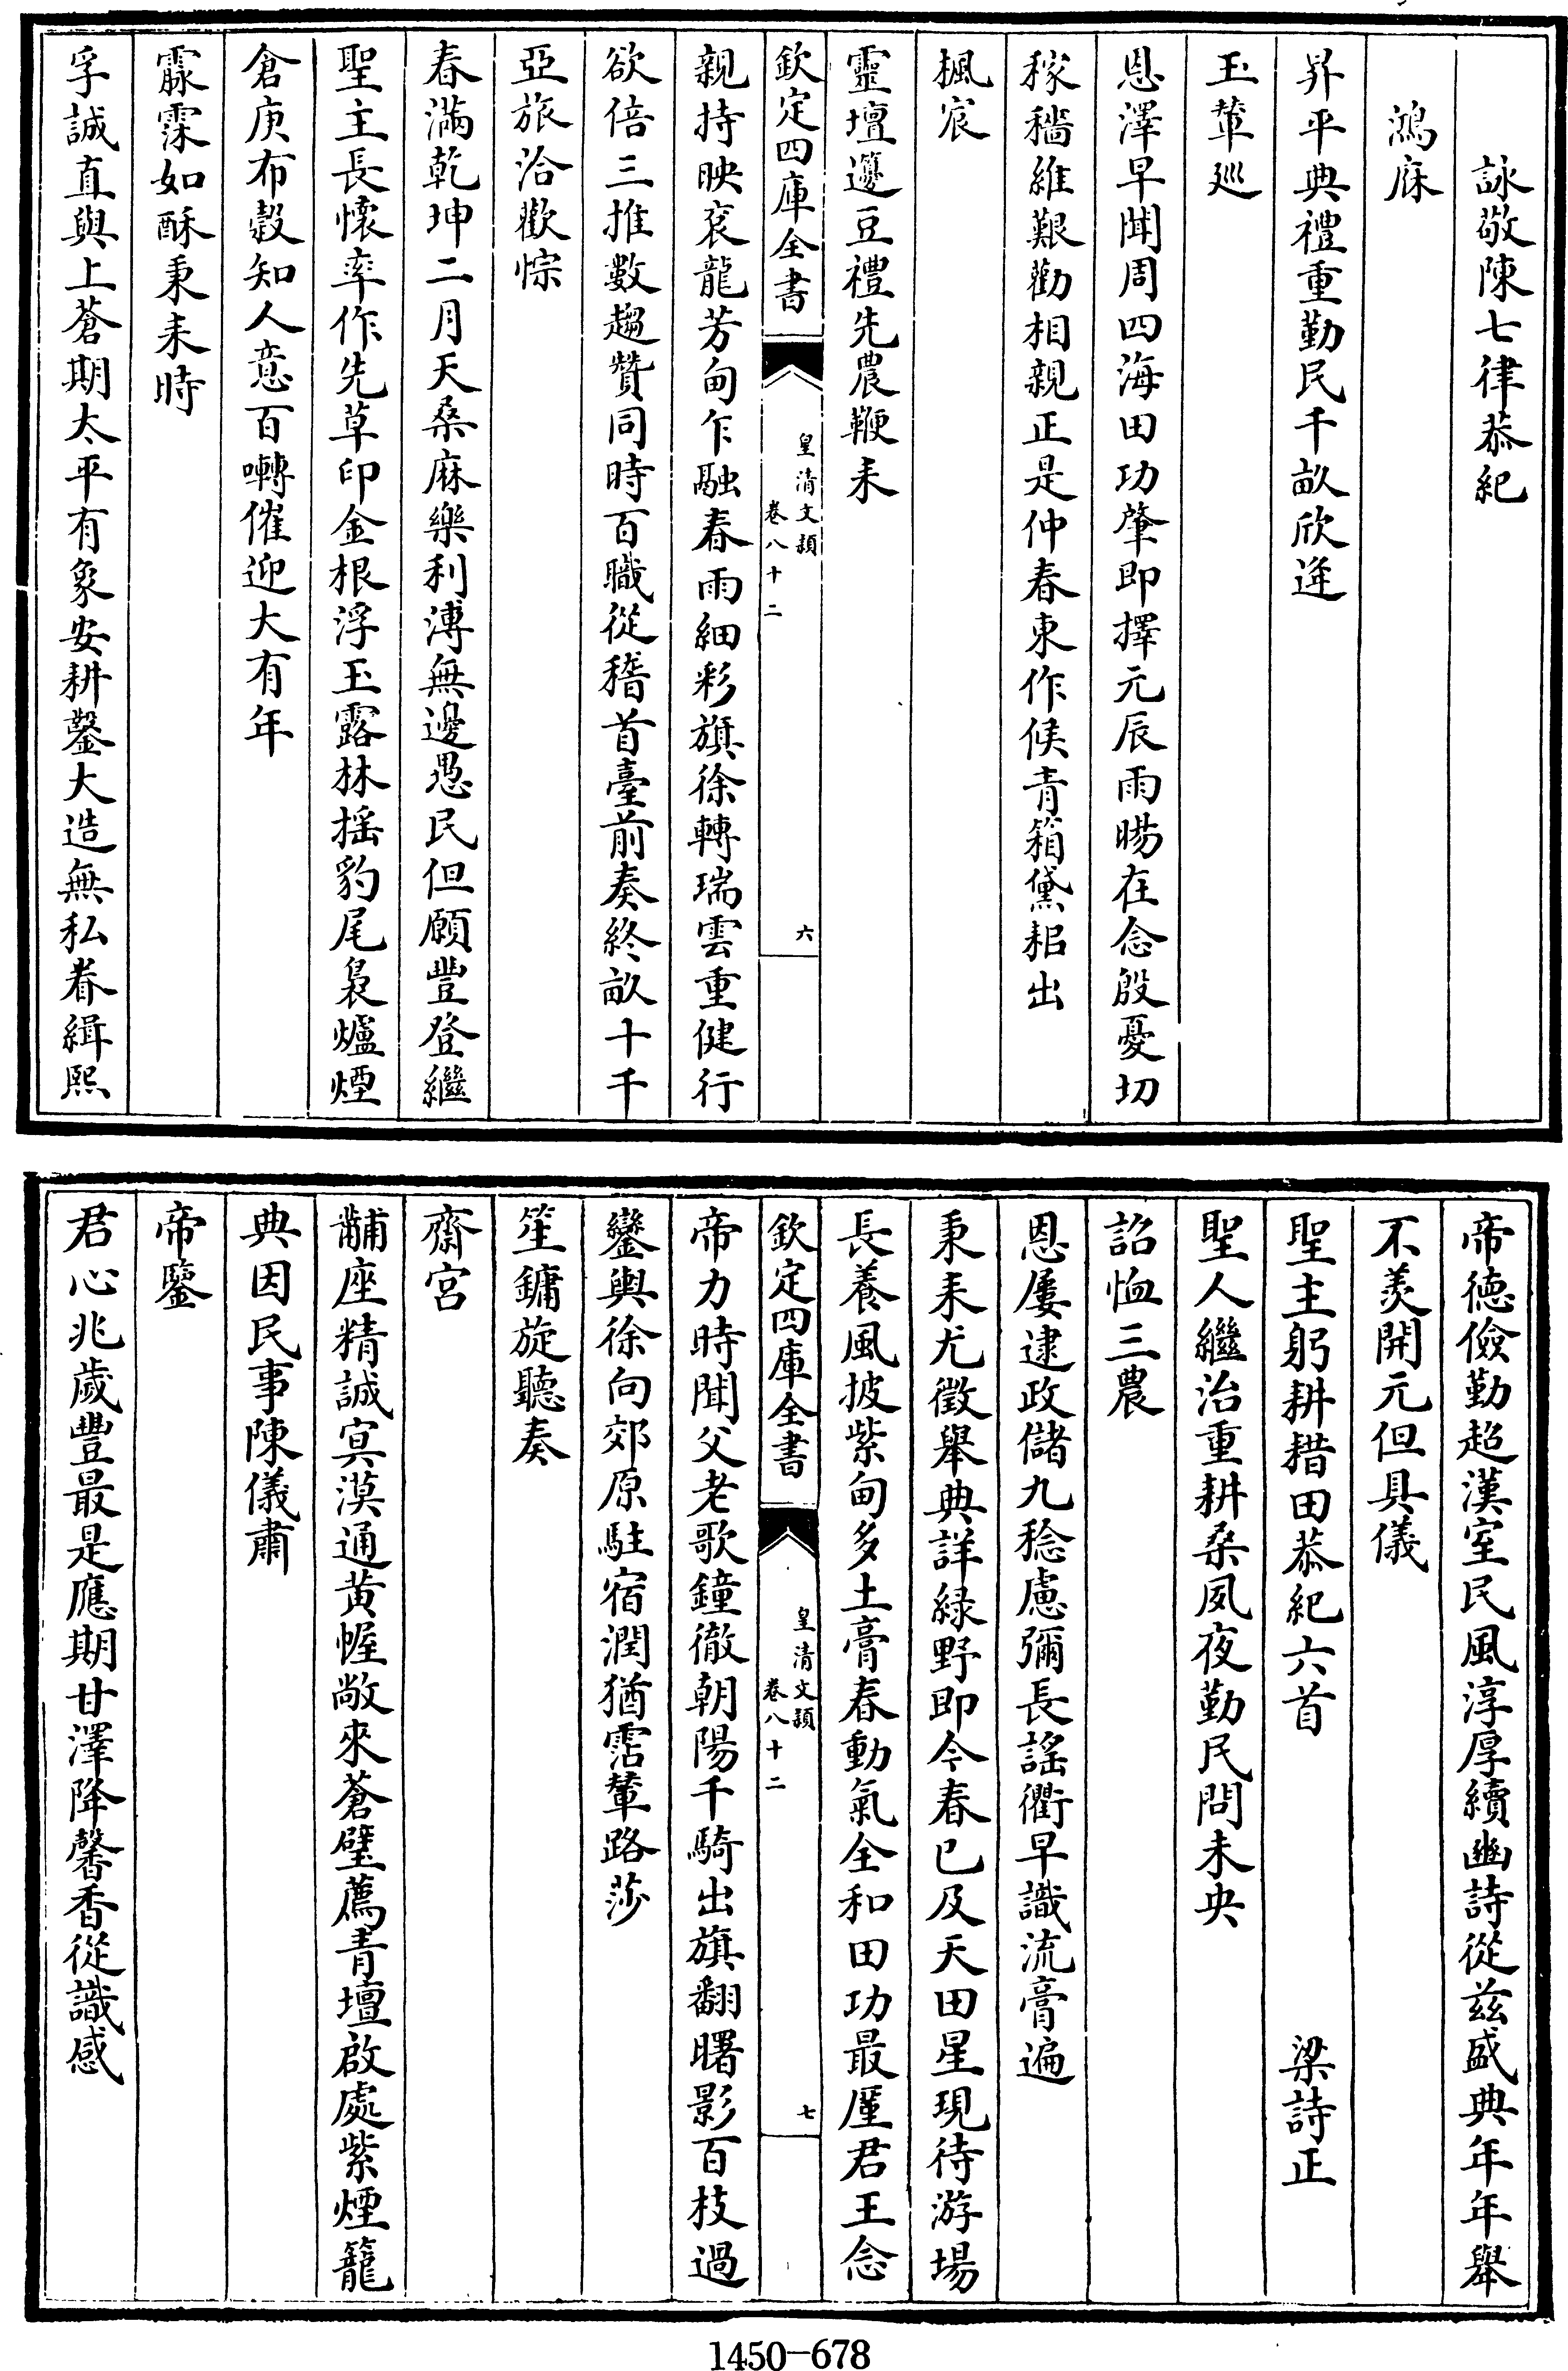 詠敬陳七律恭紀
鴻庥
昇平典禮重勤民千畝欣逢
玉輦廵
恩澤早聞周四海田功肇即擇元辰雨暘在念殷憂切
稼穡維艱勸相親正是仲春東作候青箱黛耜出
楓宸
靈壇籩豆禮先農鞭耒
欽定四庫全書
皇清文穎
卷八十二
六
親持映衮龍芳甸乍融春雨細彩旗徐轉瑞雲重健行
欲倍三推數趨贊同時百職從稽首臺前奏終畝十千
亞旅洽歡悰
春滿乾坤二月天桑麻樂利溥無邊愚民但願豐登繼
聖主長懷率作先草印金根浮玉露林揺豹尾裊爐煙
倉庚布穀知人意百囀催迎大有年
霢霂如酥秉耒時
孚誠直與上蒼期太平有象安耕鑿大造無私眷緝熙
帝德儉勤超漢室民風淳厚續豳詩從兹盛典年年舉
不羡開元但具儀
聖主躬耕耤田恭紀六首 梁詩正
聖人繼治重耕桑夙夜勤民問未央
詔恤三農
恩屢逮政儲九稔慮彌長謠衢早識流膏遍
秉耒尤徵舉典詳緑野即今春已及天田星現待游場
長養風披紫甸多土膏春動氣全和田功最厪君王念
欽定四庫全書
皇清文穎
卷八十二
七
帝力時聞父老歌鐘徹朝陽千騎出旗翻曙影百枝過
鑾輿徐向郊原駐宿潤猶霑輦路莎
笙鏞旋聽奏
齋宫
黼座精誠㝠漠通黄幄敞來蒼璧薦青壇啟處紫煙籠
典因民事陳儀肅
帝鑒
君心兆歲豐最是應期甘澤降馨香從識感
1450-678